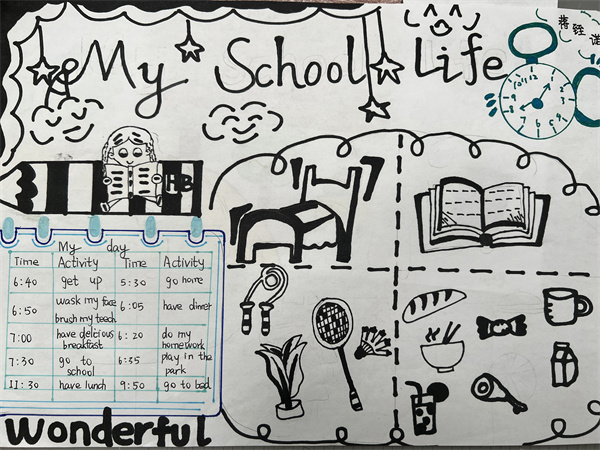 My School Life
蒋铚诺
HB
My day
Time Activity Time Activity
6:40 get up 5:30 go home
6:50 wask my face 6:05 have dinner
brush my teech
7:00 have delcious 6:20 do my
breakfast homework
7:30 go to 6:35 play in the
school park
11:30 have lunch 9:50 go to bed
Wonderful